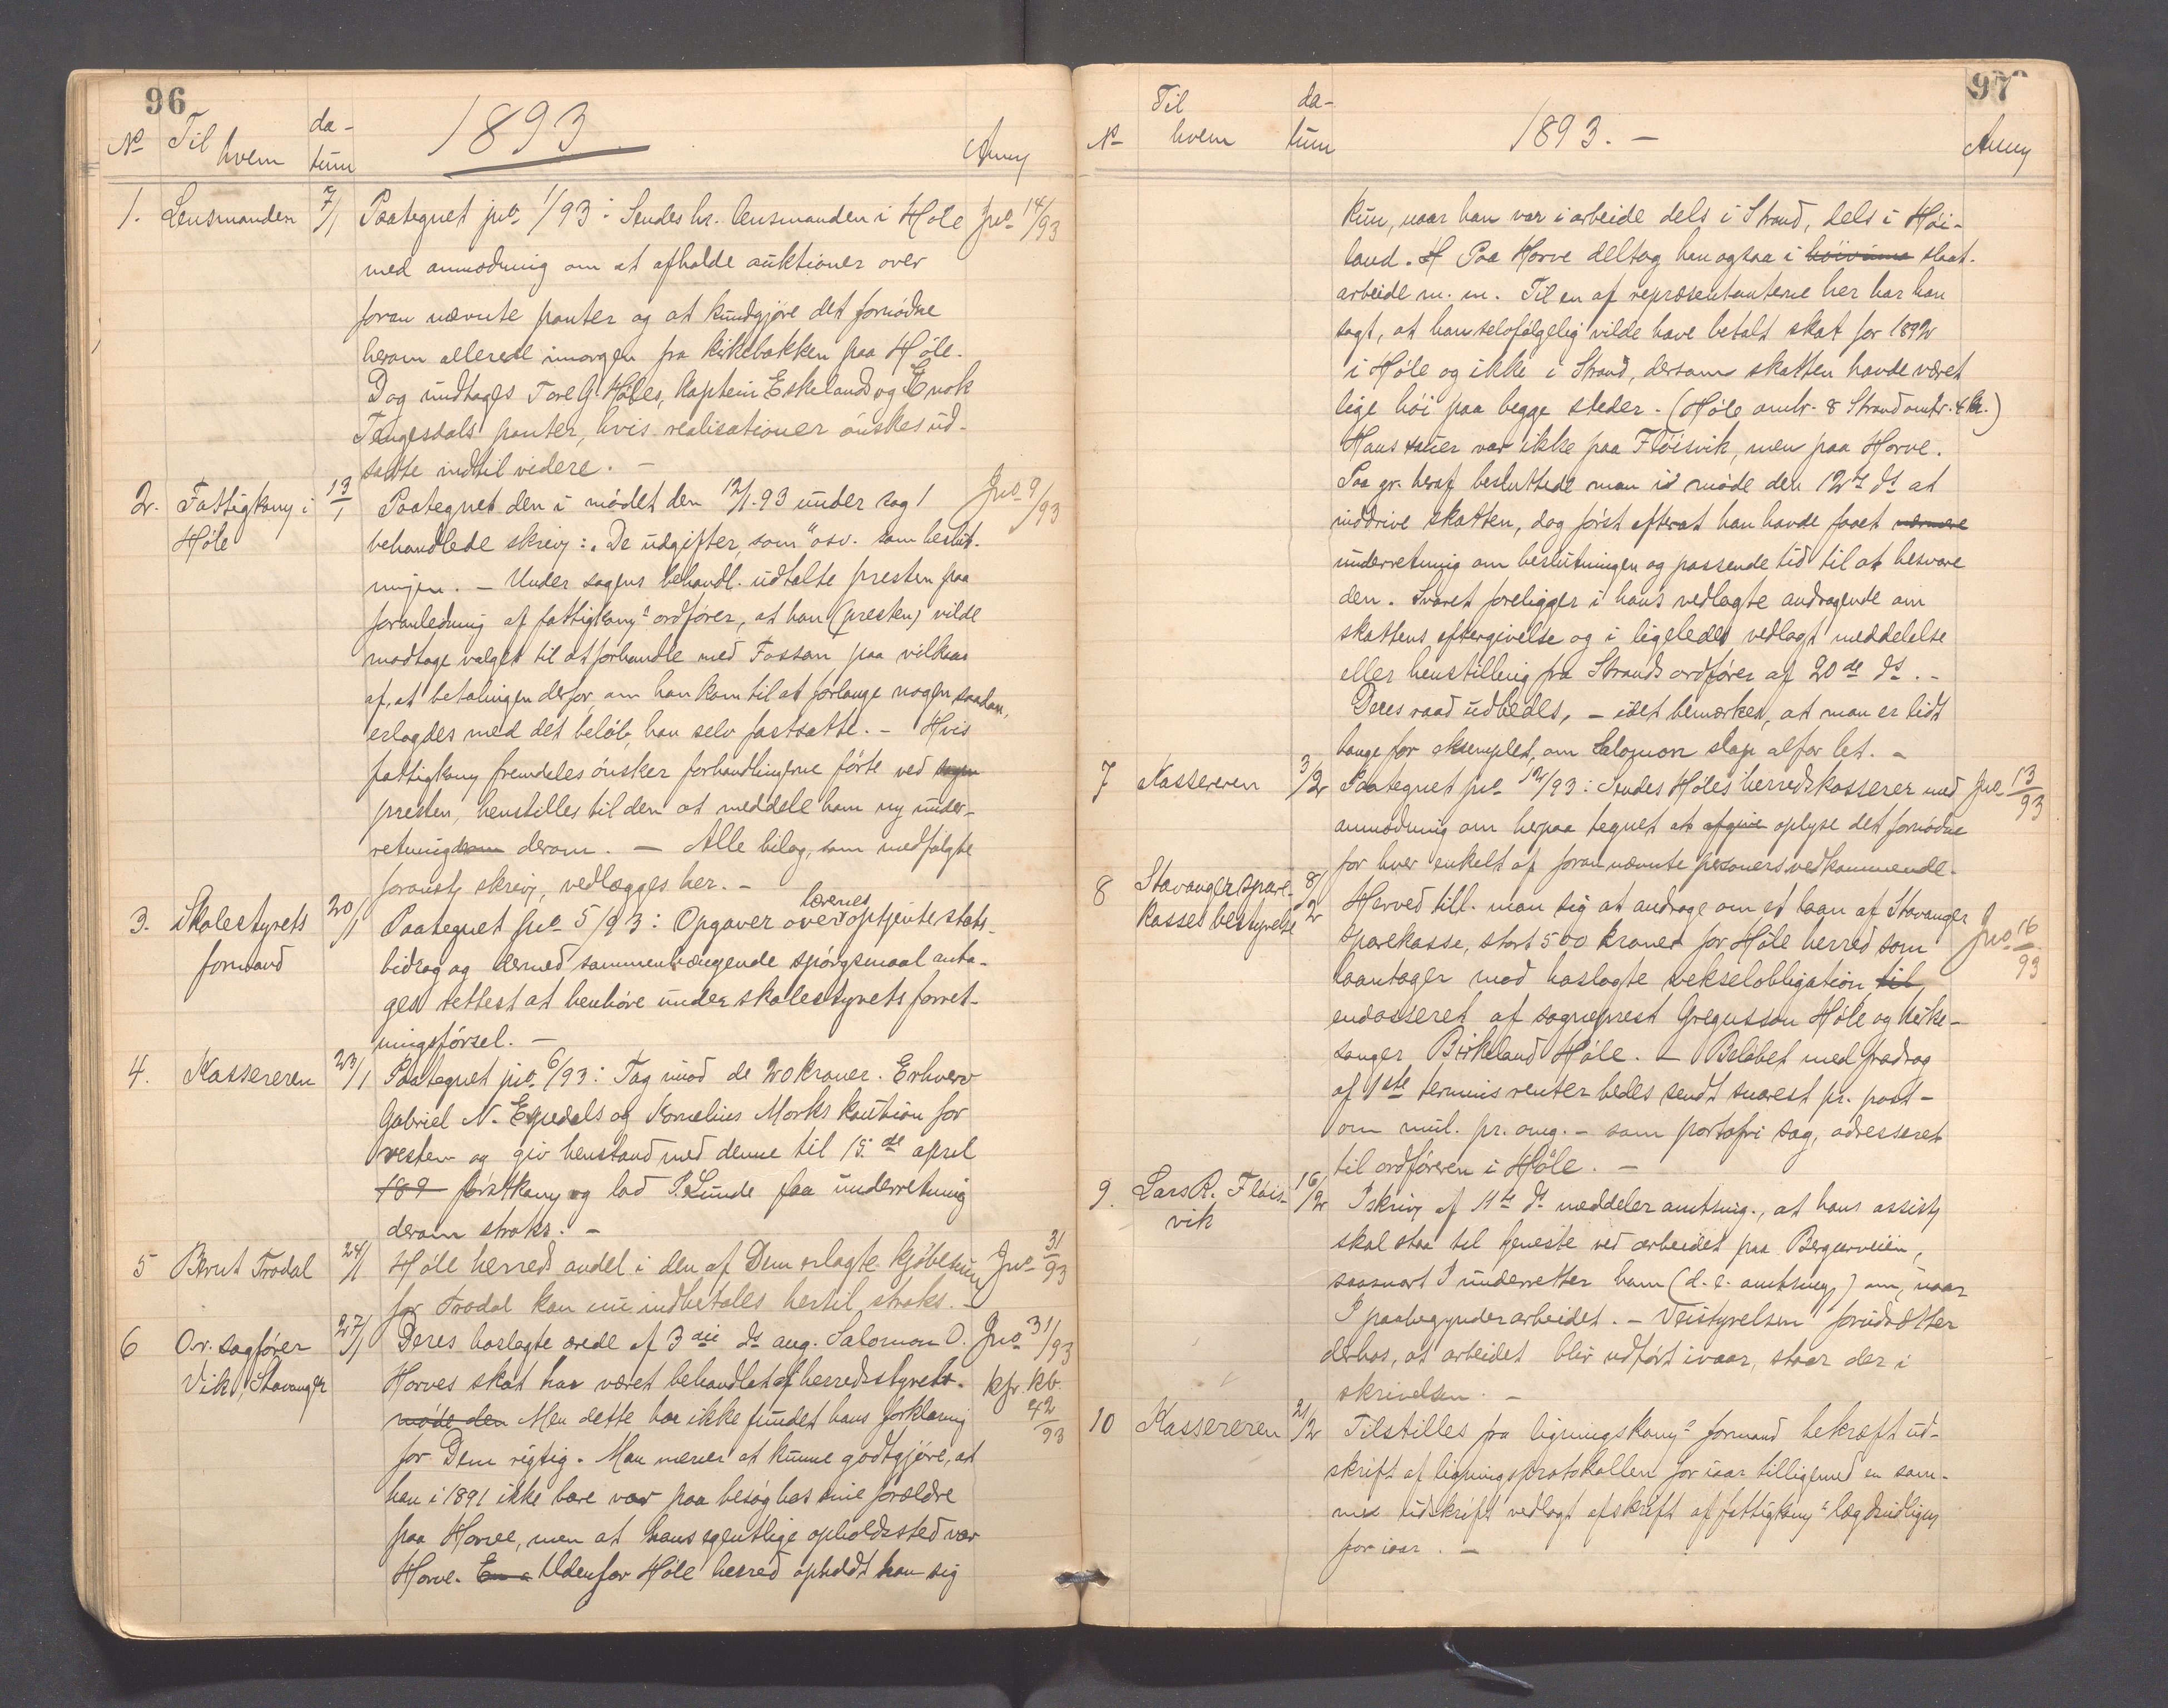 96
No Til hvem da-tum 1893 Anm
1. Lensmanden 7/1 Paategnet jno 1/93: Sendes hr. lensmanden i Høle jno 14/93
med anmodning om at afholde auktioner over
foran nævnte panter og at kundgjøre det fornødne
herom allerede imorgen fra kirkebakken paa Høle.
Dog undtages Tore G. Høles, kaptein Eskelands og Enok
Tengesdals panter, hvis realisationer ønskes ud-
satte indtil videre. –
2. Fattigkom i Høle 13/1 Paategnet den i mødet den 12/1.93 under sag 1 Jno 9/93
behandlede skriv: „De udgifter, som“ osv. som beslut-
ningen. – Under sagens behandl. udtalte presten paa
foranledning af fattigkoms ordfører, at han (presten) vilde
modtage valget til at forhandle med Fossan paa vilkaar
af, at betalingen derfor, om han kom til at forlange nogen saadan,
erlagdes med det beløb, han selv fastsatte. – Hvis
fattigkom fremdeles ønsker forhandlingerne førte ved sagen
presten, henstilles til den at meddele ham ny under-
retning derom. – Alle bilag, som medfølgte
foranst skriv, vedlægges her. –
3. Skolestyrets formand 20/1 Paategnet Jno 5/93: Opgaver over lærernes optjente stats-
bidrag og dermed sammenhængende spørgsmaal anta-
ges rettest at henhøre under skolestyrets forret-
ningsførsel. –
4. Kassereren 23/1 Paategnet jno 6/93: Tag imod de 20 kroner. Erhverv
Gabriel N. Espedals og Kornelius Morks kaution for
resten og giv henstand med denne til 15de april
189 førstkom og lad P. Lunde faa underretning
derom straks. –
5 Bernt Trodal 24/1 Høle herreds andel i den af Dem erlagte kjøbesum Jno 31/93
for Trodal kan nu indbetales hertil straks. –
6 O.r. sagfører Vik, Stavanger 27/1 Deres hoslagte ærede af 3die ds ang. Salomon O. Jno 31/93
Horves skat har været behandlet af herredsstyret. kfr. kb. 42/93
møde den Men dette har ikke fundet hans forklaring
for Dem rigtig. Man mener at kunne godtgjøre, at
han i 1891 ikke bare var paa besøg hos sine forældre
paa Horve, men at hans egentlige opholdssted var
Horve. En a Udenfor Høle herred opholdt han sig
97
No Til hvem da-tum 1893. – Anm
kun, naar han var i arbeide dels i Strand, dels i Høi-
land. H Paa Horve deltog han ogsaa i slaat-
arbeide m. m. Til en af repræsentanterne her har han
sagt, at han selvfølgelig vilde have betalt skat for 1892
i Høle og ikke i Strand, dersom skatten havde været
lige høi paa begge steder. (Høle omtr. 8 Strand omtr. 4 kr.)
Hans sauer var ikke paa Fløisvik, men paa Horve.
Paa gr. heraf besluttede man i møde den 12te ds at
inddrive skatten, dog først efterat han havde faaet nærmere
underretning om beslutningen og passende tid til at besvare
den. Svaret foreligger i hans vedlagte andragende om
skattens eftergivelse og i ligeledes vedlagt meddelelse
eller henstilling fra Strands ordfører af 20de ds. –
Deres raad udbedes, – idet bemærkes, at man er lidt
bange for eksemplet, om Salomon slap altfor let. –
7 Kassereren 3/2 Paategnet jno 12/93: Sendes Høles herredskasserer med jno 13/93
anmodning om herpaa tegnet at afgive oplyse det fornødne
for hver enkelt af foran nævnte personers vedkommende.
8 Stavanger spare-kasses bestyrelse 8/2 Herved till. man sig at andrage om et laan af Stavanger
sparekasse, stort 500 kroner for Høle herred som Jno 16/93
laantager mod hoslagte vekselobligation til
endosseret af sogneprest Gregusson Høle og kirke-
sanger Birkeland Høle. – Beløbet med fradrag
af 1ste termins renter bedes sendt snarest pr. post –
om mul. pr. omg. – som portofri sag, adresseret
til ordføreren i Høle. –
9. Lars R. Fløis-vik 16/2 I skriv af 11te ds meddeler amtsing., at hans assist
skal staa til tjeneste ved arbeidet paa Bergeveien,
saasnart I underretter ham (d. e. amtsing.) om, naar
I paabegynder arbeidet. – Veistyrelsen forudsætter
derhos, at arbeidet blir udført ivaar, staar der i
skrivelsen. –
10 Kassereren 21/2 Tilstilles fra ligningskoms formand bekræft ud-
skrift af ligningsprotokollen for iaar tilligemed en som-
me udskrift vedlagt afskrift af fattigkoms lægdsudligng
for iaar. –